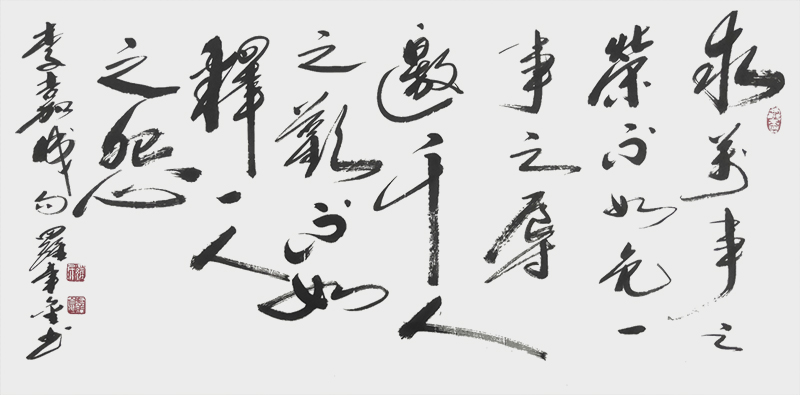 求萬事之
榮不如免一
事之辱
邀千人
之歡不如
釋一人
之怨
李嘉誠句 羅章書